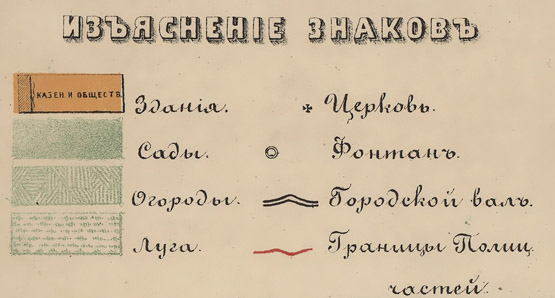 ИЗЪЯСНЕНІЕ ЗНАКОВЪ
КАЗЕН. И ОБЩЕСТВ.
Зданія.
Сады.
Огороды.
Луга.
Церковь.
Фонтанъ.
Городской валъ.
Границы Полиц.
частей.